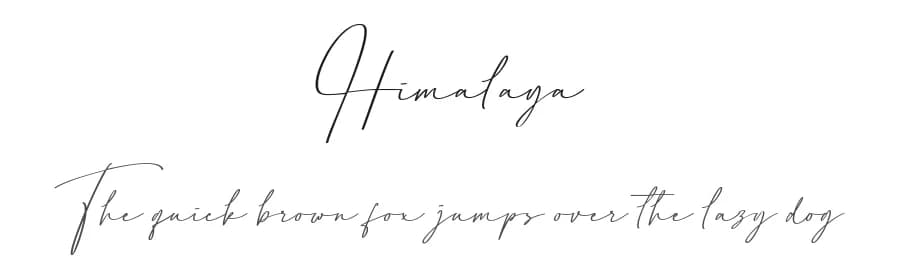 Himalaya
The quick brown fox jumps over the lazy dog